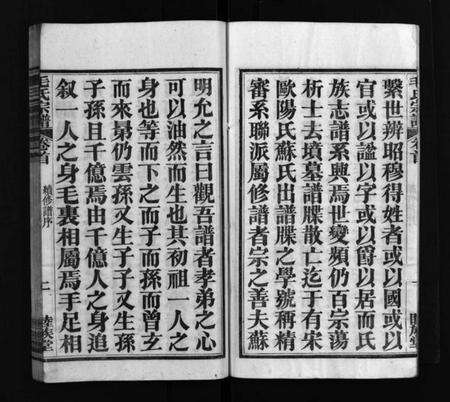 繫世辨昭穆得姓者或以國或以
官或以諡以字或以爵以居而氏
族志譜系興焉世變頻仍百宗蕩
析士去墳墓譜牒散亡迄于有宋
歐陽氏蘇氏出譜牒之學號稱精
審系聯派屬修譜者宗之善夫蘇
明允之言曰觀吾譜者孝弟之心
可以油然而生也其初祖一人之
身也等而下之而子而孫而曾玄
而來昆仍雲孫又生子子又生孫
子孫且千億焉由千億人之身追
叙一人之身毛裏相屬焉手足相
毛氏宗譜
卷首
續修譜序
二
睦族堂